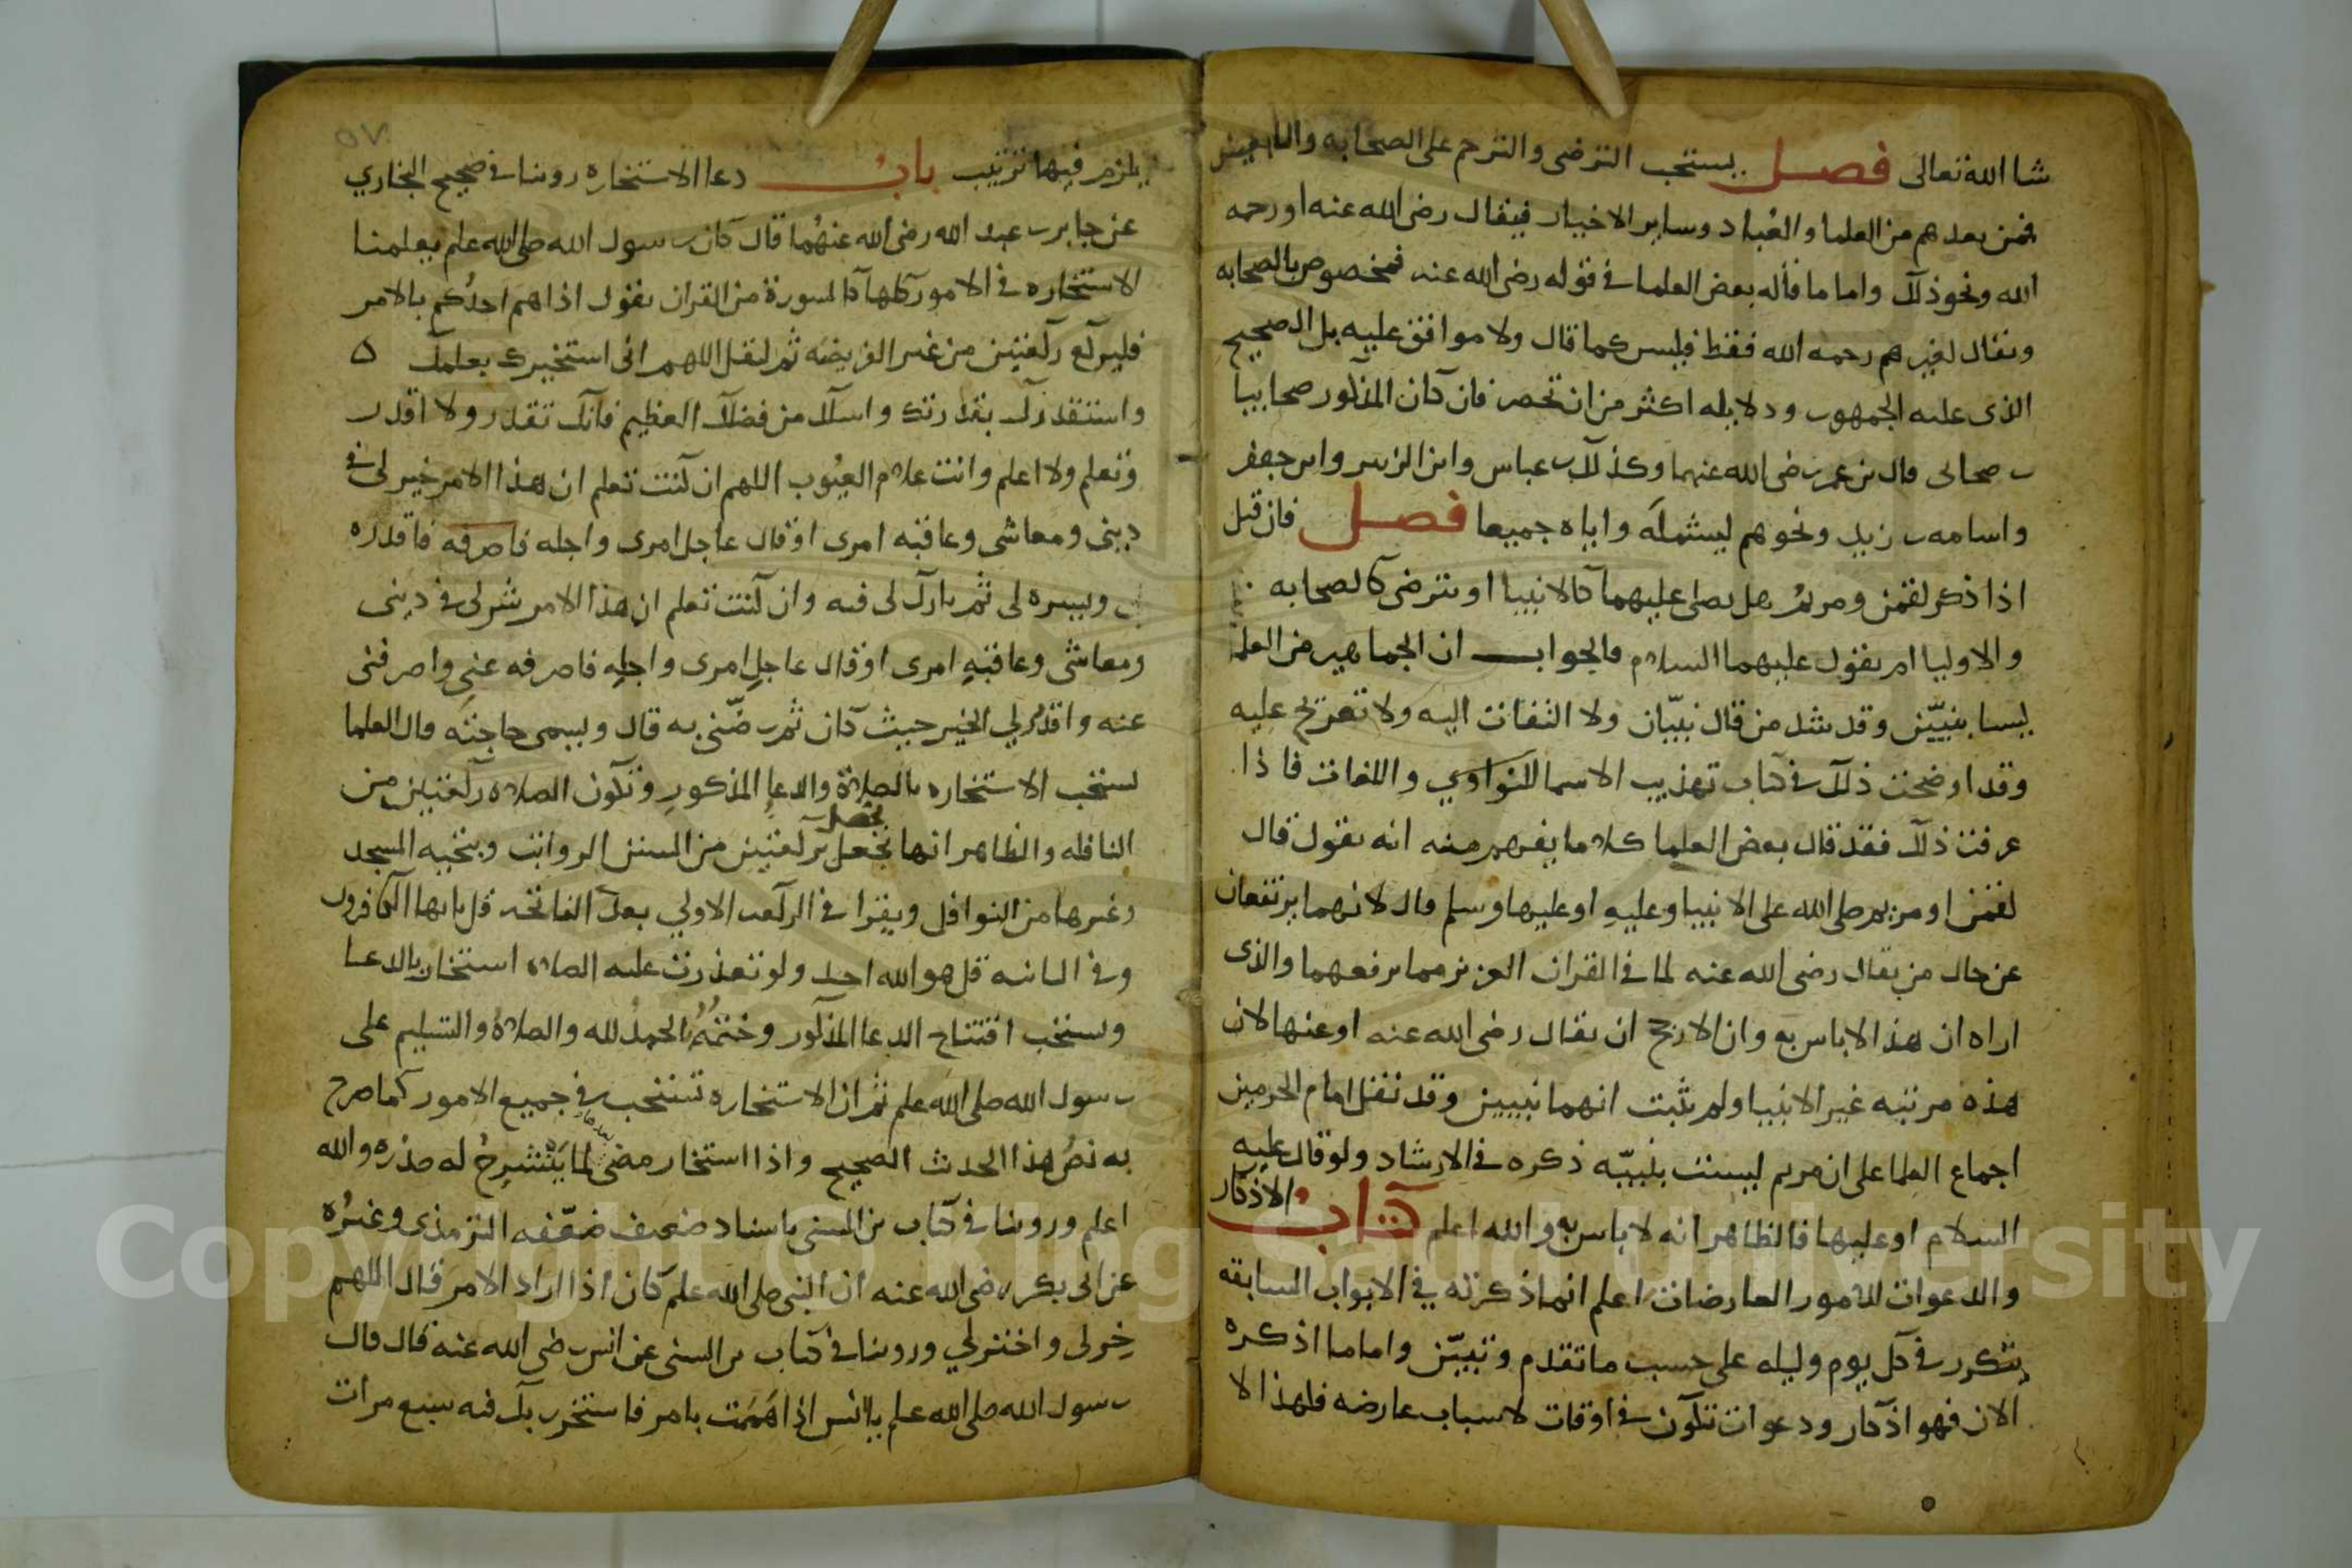 شا الله تعالى فصل يستحب الترضى والترحم على الصحابه والتابعين
فمن بعدهم من العلما والعُباد وساير الاخيار فيقال رضى الله عنه او رحمه
الله ونحو ذلك واما ما قاله بعض العلما فى قوله رضى الله عنه مخصوص بالصحابه
ويقال لغيرهم رحمه الله فقط فليس كما قال ولا موافق عليه بل الصحيح
الذى عليه الجمهور ودلايله اكثر من ان تحصر فان كان المذكور صحابيا
بن صحابى قال بن عمر رضى الله عنهما وكذلك بن عباس وابن الزبير وابن جعفر
واسامه بن زيد ونحوهم ليشمله واباه جميعا فصل فان قيل
اذا ذكر لقمن ومريم هل يصلى عليهما كالانبيا او يترضى كالصحابه
والاوليا ام يقول عليهما السلام فالجواب ان الجماهير من العلما
ليسا بنبيّين وقد شذ من قال نبيّان ولا التفات اليه ولا تعريج عليه
وقد اوضحت ذلك فى كتاب تهذيب الاسما للنواوي واللغات فاذا
عرفت ذلك فقد قال بعض العلما كلاما يفهم منه انه يقول قال
لقمن او مريم صلى الله على الانبيا وعليهِ او عليها وسلم قال لانهما يرتفعان
عن حال من يقال رضى الله عنه لما فى القران العزيز مما يرفعهما والذى
اراه ان هذا لا باس به وان الارجح ان يقال رضى الله عنه او عنها لان
هذه مرتبه غير الانبيا ولم يثبت انهما نبيين وقد نقل امام الحرمين
اجماع العلما على ان مريم ليست بنبيّه ذكره فى الارشاد ولو قال عليه
السلام او عليها فالظاهر انه لا باس به والله اعلم كتاب الاذكار
والدعوات للامور العارضات اعلم انما ذكرته في الابواب السابقه
يتكرر فى كل يوم وليله على حسب ما تقدم وتبيّن واما ما اذكره
الان فهو اذكار ودعوات تكون فى اوقات لاسباب عارضه فلهذا لا
يلزم فيها ترتيب بابُ دعا الاستخاره روينا فى صحيح البخاري
عن جابر بن عبد الله رضى الله عنهُما قال كان رسول الله صلى الله علم يعلمنا
الاستخاره فى الامور كلها كالسورة من القران يقول اذا هم احدُكم بالامر
فليركع ركعتين من غير الفريضه ثم ليقل اللهم انى استخيرك بعلمك ه
واستقدرك بقدرتك واسلك من فضلك العظيم فانك تقدر ولا اقدر
وتعلم ولا اعلم وانت علام الغيُوب اللهم ان كنت تعلم ان هذا الامر خير لى فى
دينى ومعاشى وعاقبه امرى او قال عاجل امرى واجله فاصرفه فاقدره
لى ويسره لى ثم بارك لى فيه وان كنت تعلم ان هذا الامر شر لى فى دينى
ومعاشى وعاقبهِ امرى او قال عاجلِ امرى واجلِهِ فاصرفه عنى واصرفنى
عنه واقدُر لي الخير حيث كان ثم رضّنى به قال ويسمى حاجته قال العلما
تستحب الاستخاره بالصلاة والدعا المذكورِ وتكون الصلاة ركعتين من
النافله والظاهر انها تحصل بركعتين من السنن الرواتب وبتحيه المسجد
وغيرها من النوافل ويقرا فى الركعه الاولي بعد الفاتحه قل ياايها الكافرون
وفى الثانيه قل هو الله احد ولو تعذرت عليه الصلاة استخار بالدعا
ويستحب افتتاح الدعا المذكور وختمُهُ بالحمدُ لله والصلاة والتسليم على
رسول الله صلى الله علم ثم ان الاستخاره تستحب فى جميع الامور كما صرح
به نصُ هذا الحديث الصحيح واذا استخار مضى لما ينشرحُ له صدره والله
اعلم وروينا فى كتاب بن السنى باسناد ضعيف ضعّفه الترمذى وغيرُه
عن ابى بكر رضى الله عنه ان النبى صلى الله علم كان اذا اراد الامر قال اللهم
خِر لى واختر لي وروينا فى كتاب بن السنى عن انس رضى الله عنه قال قال
رسول الله صلى الله علم ياانس اذا هَمَمت بامر فاستخر ربك فيه سبع مرات
Copyright © King Saud University